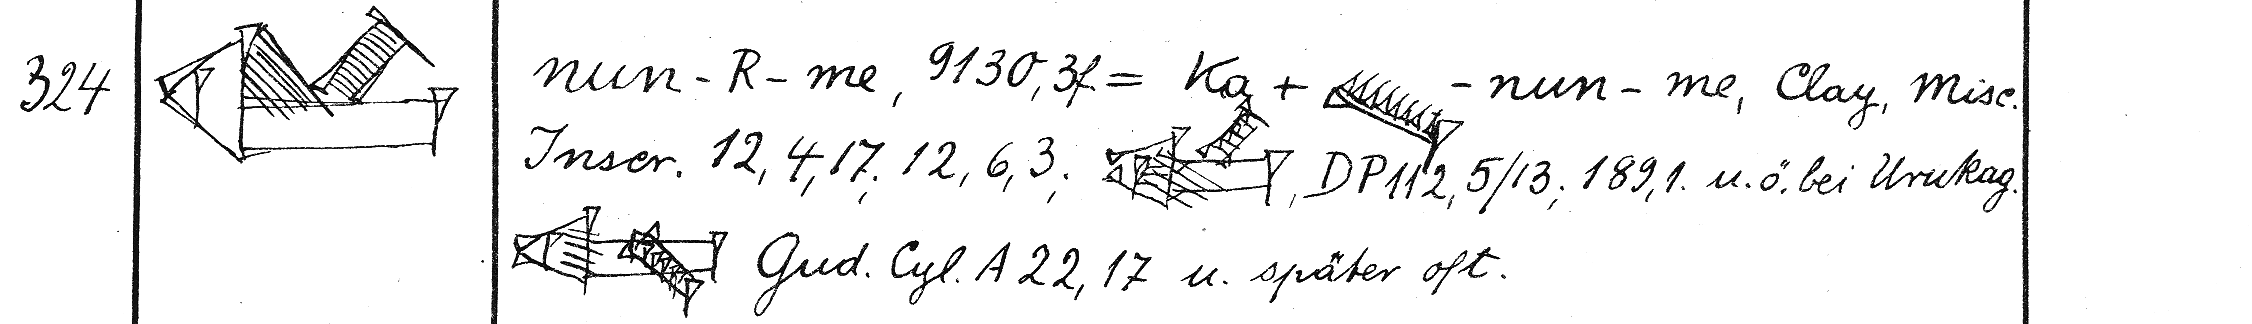 324
nun-R-me, 9130,3f. = Ka + -nun-me, Clay, Misc.
Inscr. 12,4,17. 12,6,3; , DP112,5/13; 189,1. u. ö. bei Urukag.
Gud. Cyl. A 22,17 u. später oft.